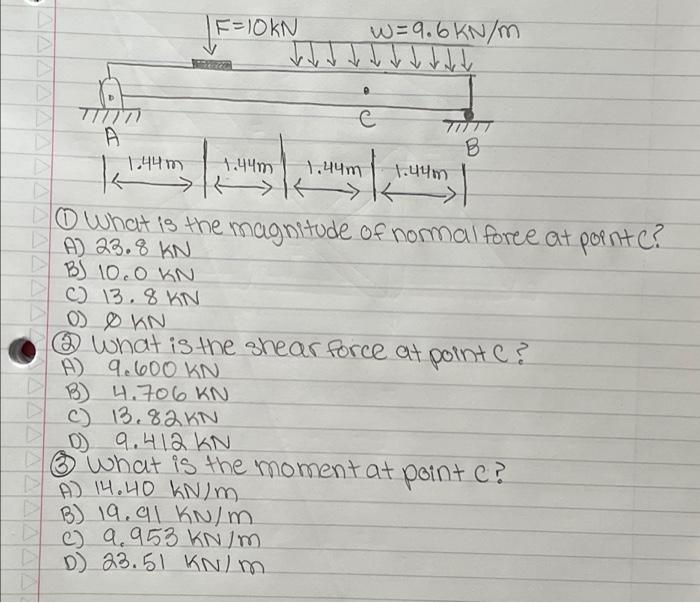 F=10KN W=9.6KN/m
C
A B
1.44m 1.44m 1.44m 1.44m
① What is the magnitude of normal force at point C?
A) 23.8 KN
B) 10.0 KN
C) 13.8 KN
D) ∅ KN
② What is the shear force at point C?
A) 9.600 KN
B) 4.706 KN
C) 13.82 KN
D) 9.412 KN
③ What is the moment at point C?
A) 14.40 KN/m
B) 19.91 KN/m
C) 9.953 KN/m
D) 23.51 KN/m